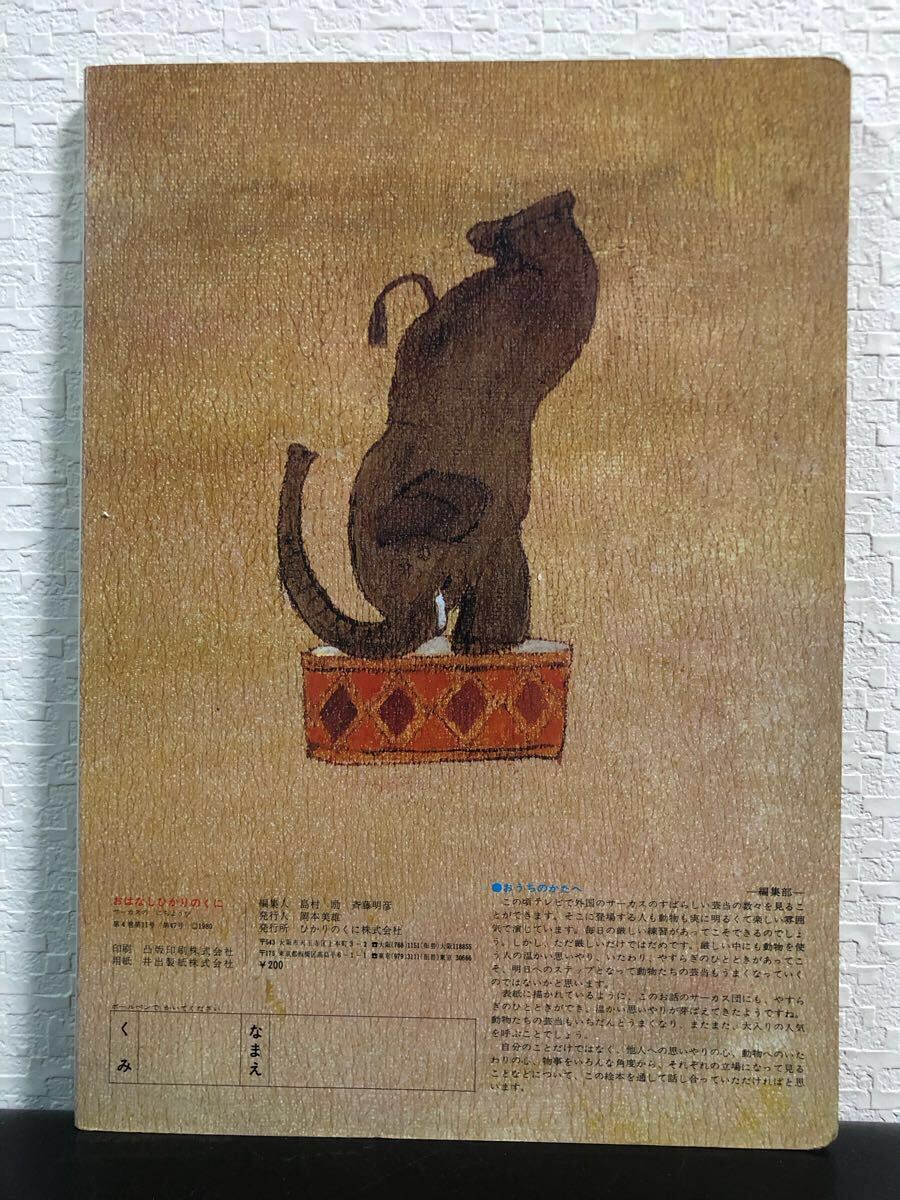 おはなしひかりのくに
サーカスの にちようび
第4巻第11号（第47号）©1980
印刷 凸版印刷株式会社
用紙 井出製紙株式会社
編集人 島村 斉藤明彦
発行人 岡本美雄
発行所 ひかりのくに株式会社
〒543 大阪市天王寺区上本町3-2 ☎大阪(768)1151(振替)大阪118855
〒175 東京都板橋区高島平6-1-1 ☎東京(979)3111(振替)東京 30666
￥200
ボールペンでかいてください
くみ
なまえ
●おうちのかたへ
―編集部―
この頃テレビで外国のサーカスのすばらしい芸当の数々を見るこ
とができます。そこに登場する人も動物も実に明るくて楽しい雰囲
気で演じています。毎日の厳しい練習があってこそできるのでしょ
う。しかし、ただ厳しいだけではだめです。厳しい中にも動物を使
う人の温かい思いやり、いたわり、やすらぎのひとときがあってこ
そ、明日へのステップとなって動物たちの芸当もうまくなっていく
のではないかと思います。
表紙に描かれているように、このお話のサーカス団にも、やすら
ぎのひとときができ、温かい思いやりが芽ばえてきたようですね。
動物たちの芸当もいちだんとうまくなり、またまた、大入りの人気
を呼ぶことでしょう。
自分のことだけではなく、他人への思いやりの心、動物へのいた
わりの心、物事をいろんな角度から、それぞれの立場になって見る
ことなどについて、この絵本を通して話し合っていただければと思
います。